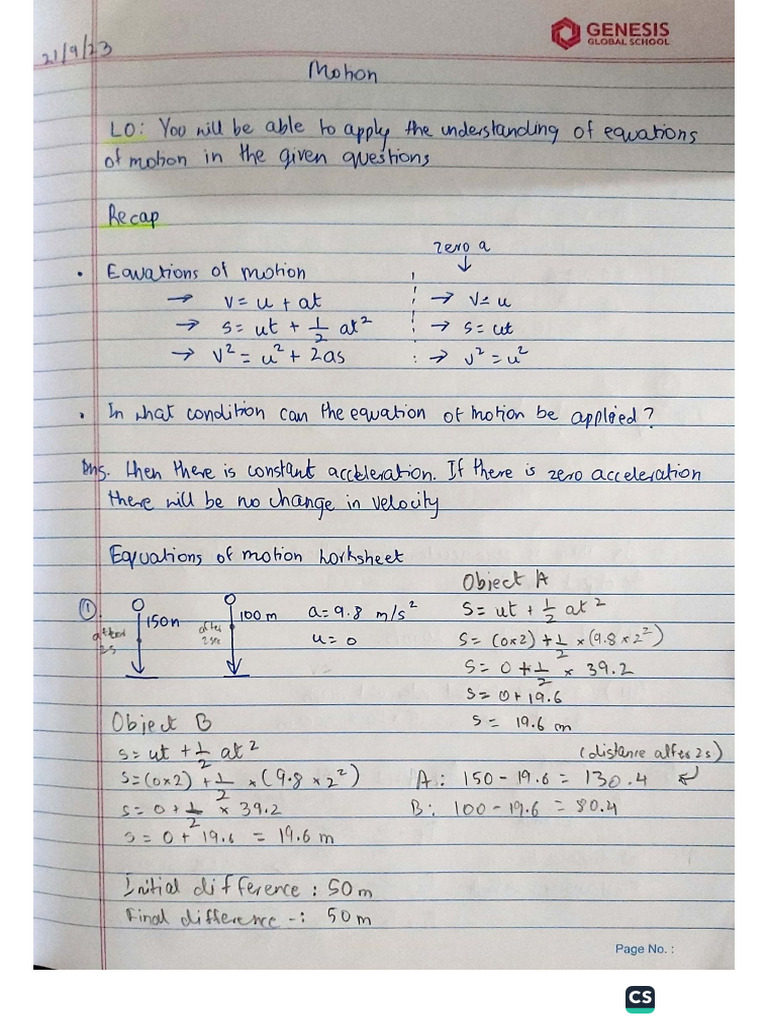 GENESIS
GLOBAL SCHOOL
21/9/23
Motion
LO: You will be able to apply the understanding of equations
of motion in the given questions
Recap
zero a
• Equations of motion
→ v = u + at → v = u
→ s = ut + 1/2 at² → s = ut
→ v² = u² + 2as → v² = u²
• In what condition can the equation of motion be applied?
Ans. When there is constant acceleration. If there is zero acceleration
there will be no change in velocity
Equations of motion Worksheet
Object A
① 150m 100m a = 9.8 m/s² s = ut + 1/2 at²
after 2s after 2sec u = 0 s = (0×2) + 1/2 × (9.8 × 2²)
s = 0 + 1/2 × 39.2
s = 0 + 19.6
s = 19.6 m
Object B
s = ut + 1/2 at² (distance after 2s)
s = (0×2) + 1/2 × (9.8 × 2²) A: 150 - 19.6 = 130.4
s = 0 + 1/2 × 39.2 B: 100 - 19.6 = 80.4
s = 0 + 19.6 = 19.6 m
Initial difference : 50m
Final difference -: 50m
Page No. :
CS